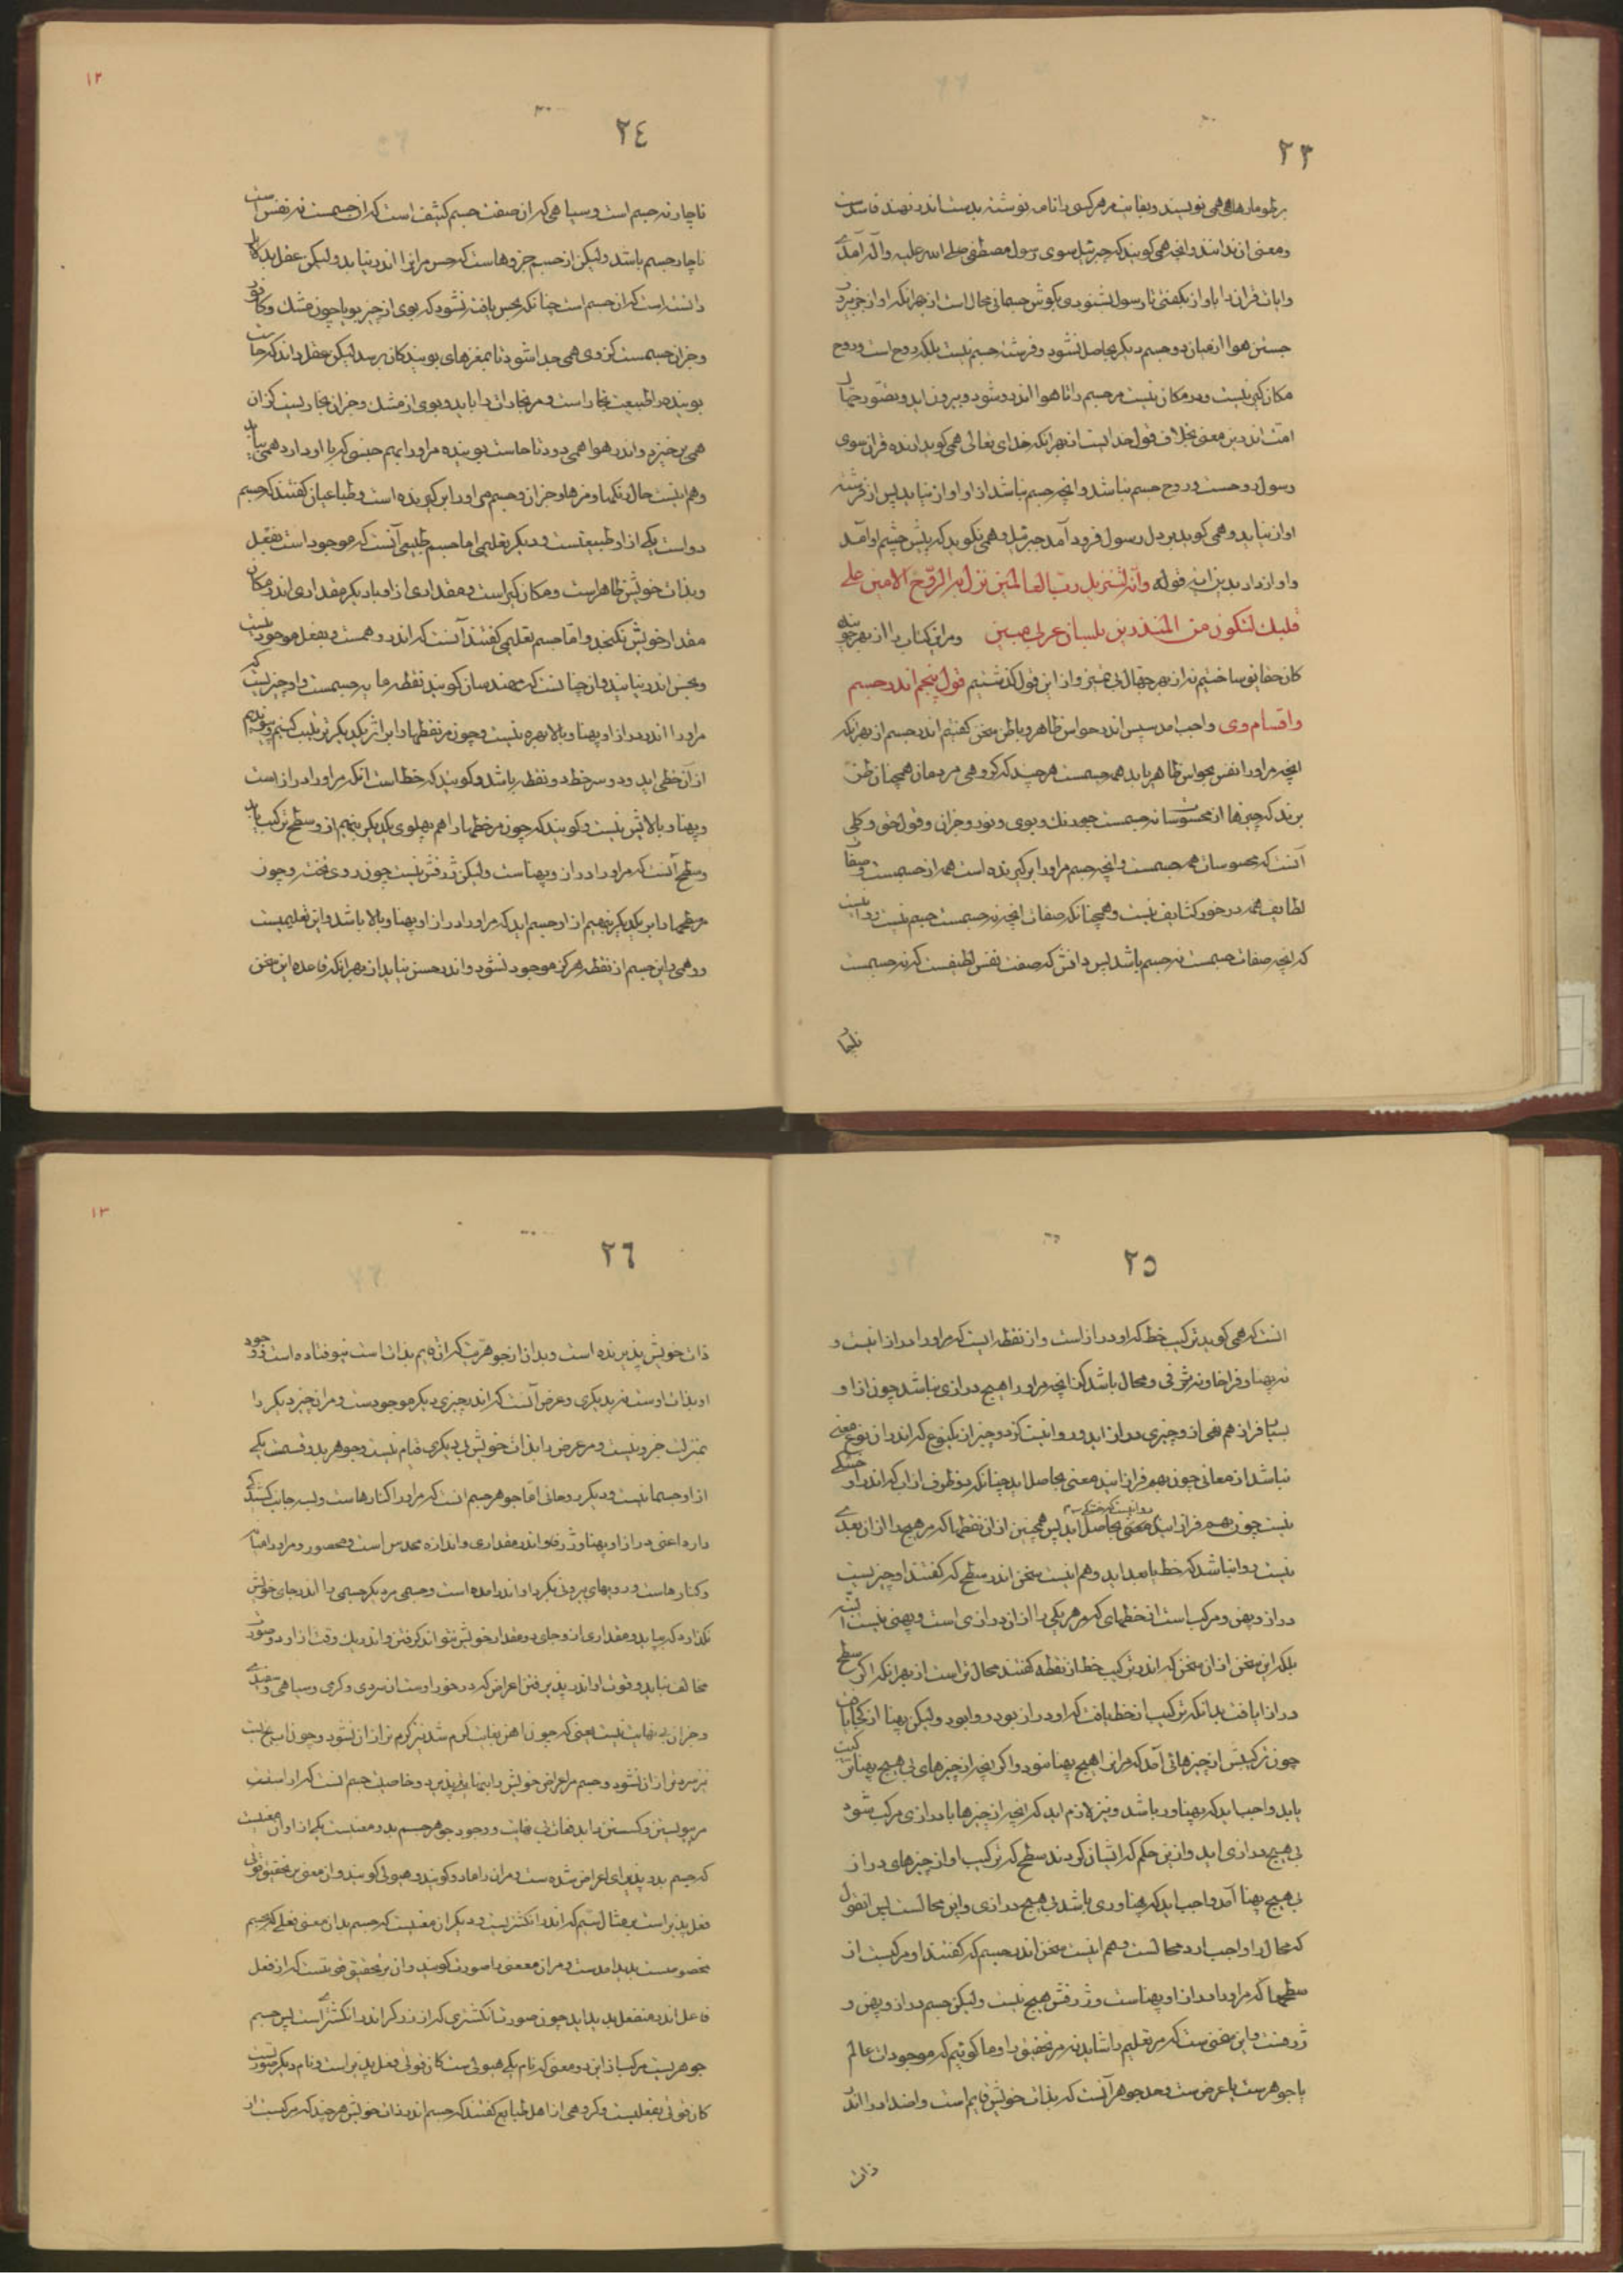 ٢٣
بر طومارها همی نویسند و بقیامت مر هر کسی را نامه نوشته بدست اندر نهند فاسدست
و معنی آن ندانند و آنچه همی گویند که جبرئیل سوی رسول مصطفی صلی الله علیه و آله آمدی
و آیات قرآن را بآواز بگفتی تا رسول بشنودی بگوش جسمانی محال است از بهر آنکه آواز جز ببیرون
جستن هوا از میان دو جسم دیگر حاصل نشود و فرشته جسم نیست بلکه روح است و روح
مکان گیر نیست و در مکان نیست مر جسم را تا هوا اندرو شود و بیرون آید و تصور جهال
امت اندرین معنی بخلاف قول خدایست از بهر آنکه خدای تعالی همی گوید آرنده قرآن سوی
رسول روحست و روح جسم نباشد و آنچه جسم نباشد از او آواز نیاید پس از فرشته
آواز نیاید و همی گوید بر دل رسول فرود آمد جبرئیل و همی نگوید که پیش چشم او آمد
و آواز داد بدین آیه قوله وانه لتنزیل رب العالمین نزل به الروح الامین علی
قلبک لتکون من المنذرین بلسان عربی مبین و مر این کتاب را از بهر جویندگان
کان حقایق ساختیم نه از بهر جهال بی تمیز و از این قول گذشتیم قول پنجم اندر جسم
و اقسام وی واجب آمد سپس اندر حواس ظاهر و باطن سخن گفتیم اندر جسم از بهر آنکه
آنچه مر او را نفس بحواس ظاهر یابد همه جسمست هر چند که گروهی مردمان همچنان ظن
برند که چیزها از محسوسات نه جسمست چو رنگ و بوی و نور و جز آن و قول حق و کلی
آنست که محسوسات همه جسمست و آنچه جسم مر او را بر گیرنده است همه از جسمست و صفات
لطایف همه در خور کثایف نیست و همچنانکه صفات آنچه نه جسمست جسم نیست روا نیست
که آنچه صفات جسمست نه جسم باشد پس دانش که صفت نفس لطیفست که نه جسمست
٢٤
ناچار نه جسم است و سیاهی که آن صفت جسم کثیف است که آن جسمست نه نفس است
ناچار جسم باشد ولیکن از جسم جزوهاست که حس مر آنرا اندر نیابد ولیکن عقل
دانسته است که آن جسم است چنانکه بحس یافته نشود که بوی از چیز بویا چون مشک و کافور
و جز آن جسمست کز وی همی جدا شود تا بمغزهای بویندکان برسد لیکن عقل داند که حاست
بوینده را طبیعت بخار است و مر بخارات را یابد و بوی از مشک و جز آن بخاریست کز آن
همی بر خیزد و اندر هوا همی رود تا حاست بوینده مر او را بهم جنسی که با او دارد همی بیابد
و هم اینست حال رنگها و مزه ها و جز آن و جسم مر او را بر گیرنده است و طباعیان گفتند که جسم
دو است یکی از او طبیعتست و دیگر تعلیمی اما جسم طبیعی آنست که موجود است بفعل
و بذات خویش ظاهر است و مکان گیر است و مقداری از او با دیگر مقداری اندر مکان
مقدار خویش نگنجد و اما جسم تعلیمی گفتند آنست که اندر وهمست و بفعل موجود نیست
و بحس اندر نیاید و آن چنانست که مهندسان گویند نقطه مایه جسمست و او چیزیست که
مر او را اندر درازا و پهنا و بالا بهره نیست و چون مر نقطها را بر اثر یکدیگر ترتیب کنیم
از آن خطی آید و دو سر خط دو نقطه باشد و گویند که خط است آنکه مر او را درازاست
و پهنا و بالاش نیست و گویند که چون مر خطها را هم پهلوی یکدیگر بنهیم از و سطح ترکیب یابد
و سطح آنست که مر او را دراز و پهناست ولیکن ژرفش نیست چون روی تخت و چون
مر سطحها را بر یکدیگر بنهیم از او جسم آید که مر او را درازا و پهنا و بالا باشد و این تعلیمیست
و وهمی و این جسم از نقطه هرگز موجود نشود و اندر حس نیاید از بهر آنکه قاعده این سخن
٢٥
آنست که همی گوید ترکیب خط که او دراز است و از نقطه ایست که مر او را درازا نیست و
نه پهنا و فراخا و نه ژرفی و محال باشد کز آنچه مر او را هیچ درازی نباشد چون از او
بسیار فراز هم نهی از و چیزی دراز آید و روا نیست کز دو چیز از یکنوع که اندر آن نوع معنی
نباشد از معانی چون بهم فراز آیند معنی حاصل آید چنانکه دو ظرف از آب که اندر او خشکی
نیست چون بهم فراز آیند روا نیست که خشکی حاصل آید پس همچنین از آن نقطها که مر هیچ را از آن بعدی
نیست روا نباشد که خط با بعد آید و هم اینست سخن اندر سطح که گفتند او چیزیست
دراز و پهن و مرکب است از خطهای که مر هر یکی را از آن درازی است و پهنی نیست البته
بلکه این سخن از آن سخن که اندر ترکیب خط از نقطه گفتند محال تر است از بهر آنکه اگر سطح
درازا یافت بدانکه ترکیب از خط یافت که او دراز بود روا بود ولیکن پهنا از کجا یافت
چون ترکیبش از چیزهائی آمد که مر آنرا هیچ پهنا نبود و اگر آنچه از چیزهای بی هیچ پهنا ترکیب
یابد واجب آید که پهناور باشد و نیز لازم آید که آنچه از چیزها با درازی مرکب شود
بی هیچ درازی آید و ازین حکم که ایشان کردند سطح که ترکیب او از چیزهای دراز
بی هیچ پهنا آمد واجب آید که پهناوری باشد بی هیچ درازی و این محالست پس آنقول
که محال را واجب آرد محالست و هم اینست سخن اندر جسم که گفتند او مرکبست از
سطحها که مر او را درازا و پهناست و ژرفش هیچ نیست ولیکن جسم دراز و پهن و
ژرفست و این سخنی ست که مر تعلیم را شاید نه مر تحقیق را و ما گوئیم که موجودات عالم
یا جوهرست یا عرض ست و حد جوهر آنست که بذات خویش قایم است و اضداد را اندر
ذات
٢٦
ذات خویش پذیرنده است و بدان از جوهریت که آن قایم بذات است نیوفتاده است و وجود
او بذات اوست نه بدیگری و عرض آنست که اندر چیزی دیگر موجودست و مر آن چیز دیگر را
بمنزلت جزو نیست و مر عرض را بذات خویش بی دیگری قیام نیست و جوهر بدو قسمت یکی
از او جسمانیست و دیگر روحانی اما جوهر جسم آنست که مر او را کنارهاست و بسه جانب کشیدگی
دارد اعنی درازا و پهنا و ژرفا و اندر مقداری و اندازه محدود است و محصور و مر او را
و کنارهاست و رویهای بیرونی بگرد او اندر آمده است و جسمی مر دیگر جسمی را اندر جای خویش
نگذارد که بیاید و مقداری از و جای دو مقدار خویش نتواند گرفتن و اندر یک وقت از او دو صورت
مخالف نیاید و قوت او اندر پذیرفتن اعراض که در خور اوست از سردی و گرمی و سیاهی و سفیدی
و جز آن بی نهایت نیست یعنی که چون آهن بغایت گرم شد نیز گرم تر از آن نشود و چون آب یخ بست
نیز سردتر از آن نشود و جسم مر اعراض خویش را بنهایت پذیرد و خاصیت جسم آنست که
مر پیوستن و گسستن را بدفعات بی نهایت و وجود جوهر جسم بدو معنیست یکی از او آن معنیست
که جسم بدو پذیرای اعراض شده ست و مر آن را ماده گویند و هیولی گویند و آن معنی بتحقیق قوتی
فعل پذیر است بمثال سیم که اندر انگشتریست و دیگر آن معنیست که جسم بدان معنی فعلی که بجسم
مخصوصست پدید آمدست و مر آن معنی را صورت گویند و آن بتحقیق قوتست که از فعل
فاعل اندر منفعل پدید آید چون صورت انگشتری که از زرگر اندر انگشتری است پس جسم
جوهریست مرکب از این دو معنی که نام یکی هیولی ست کان قوتی فعل پذیر است و نام دیگر صورتست
کان قوتی بفعلیست و گروهی از اهل طبایع گفتند که جسم اندر ذات خویش هر چند که مرکبست از